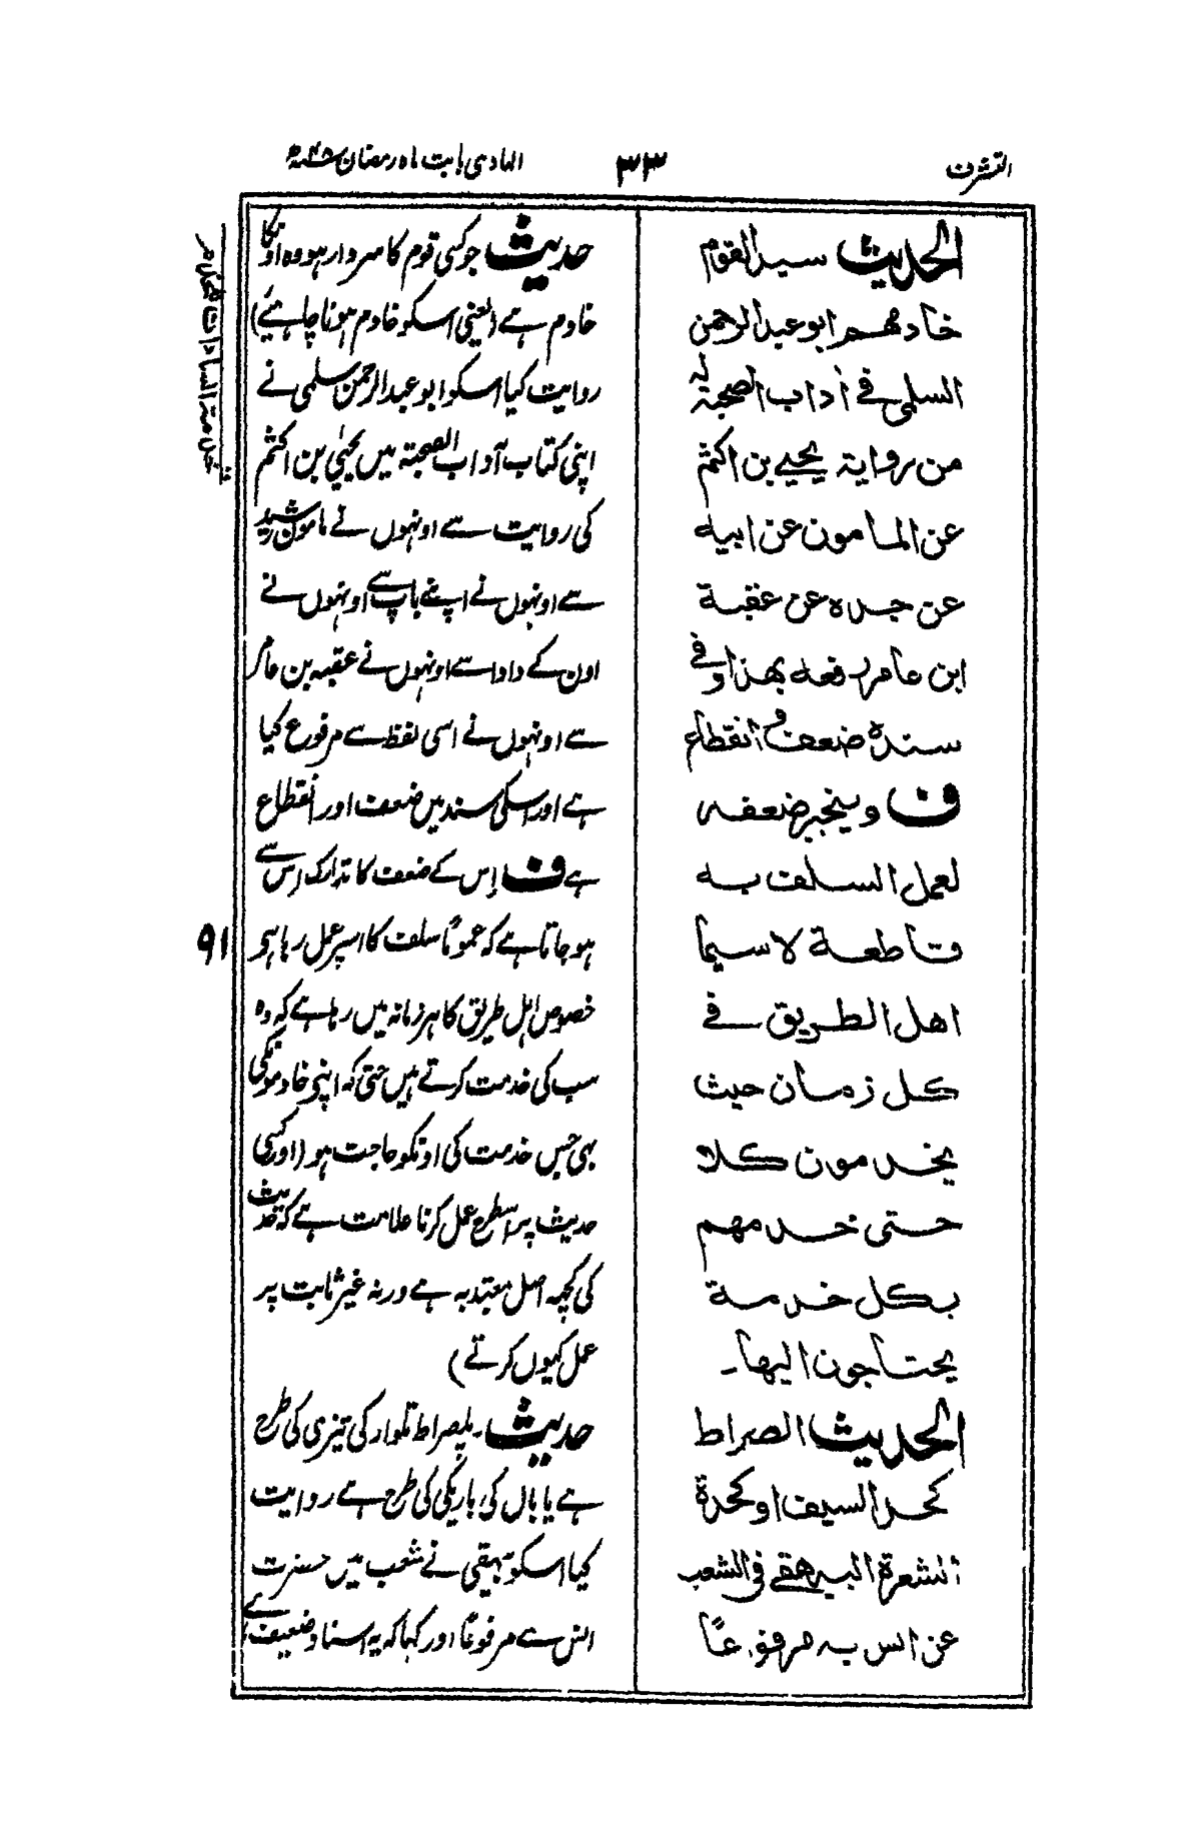 التشرف
۳۳
الہادی بابت ماہ رمضان
الحدیث سید القوم
خادمھم ابو عبد الرحمن
السلمی فے اٰداب الصحبۃ لہ
من روایۃ یحیے بن اکثم
عن المامون عن ابیہ
عن جدہ عن عقبۃ
ابن عامر رفعہ بھذا وفے
سندہ ضعف و انقطاع
ف وینجبر ضعفہ
لعمل السلف بہ
قاطعۃ لا سیما
اھل الطریق فے
کل زمان حیث
یخدمون کلا
حتی خدمھم
بکل خدمۃ
یحتاجون الیھا۔
الحدیث الصراط
کحد السیف او کحدۃ
الشعرۃ البیھقے فی الشعب
عن انس بہ مرفوعاً
حدیث جو کسی قوم کا سردار ہو وہ اونکا
خادم ہے (یعنی اسکو خادم ہونا چاہئے)
روایت کیا اسکو ابو عبدالرحمن سلمی نے
اپنی کتاب آداب الصحبۃ میں یحییٰ بن اکثم
کی روایت سے اونہوں نے مامون رشید
سے اونہوں نے اپنے باپ سے اونہوں نے
اون کے دادا سے اونہوں نے عقبہ بن عامر
سے اونہوں نے اسی لفظ سے مرفوع کیا
ہے اور اسکی سند میں ضعف اور انقطاع
ہے ف اِس کے ضعف کا تدارک اس سے
ہو جاتا ہے کہ عموماً سلف کا اسپر عمل رہا ہے
خصوص اہل طریق کا ہر زمانہ میں رہا ہے کہ وہ
سب کی خدمت کرتے ہیں حتی کہ اپنی خادمونکی
بھی جس خدمت کی اونکو حاجت ہو (اور کسی
حدیث پر اسطرح عمل کرنا علامت ہے کہ حدیث
کی کچھ اصل معتدبہ ہے ورنہ غیر ثابت پر
عمل کیوں کرتے)
حدیث۔ پلصراط تلوار کی تیزی کی طرح
ہے یا بال کی باریکی کی طرح ہے روایت
کیا اسکو بیہقی نے شعب میں حضرت
انس سے مرفوعًا اور کہا کہ یہ اسناد ضعیف ہے
خدمۃ السادات
۹۱